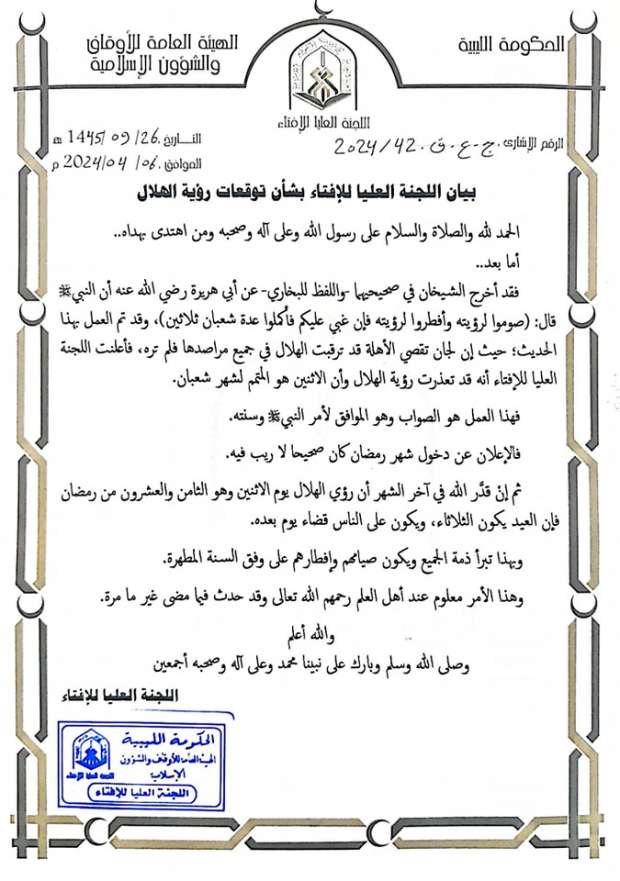 الحكومة الليبية
الهيئة العامة للأوقاف
والشؤون الإسلامية
اللجنة العليا للإفتاء
الرقم الإشاري: ج.ع.ق.2024/42
التاريخ: 1445/09/26 هـ
الموافق: 2024/04/06 م
بيان اللجنة العليا للإفتاء بشأن توقعات رؤية الهلال
الحمد لله والصلاة والسلام على رسول الله وعلى آله وصحبه ومن اهتدى بهداه..
أما بعد..
فقد أخرج الشيخان في صحيحيهما -واللفظ للبخاري- عن أبي هريرة رضي الله عنه أن النبي ﷺ
قال: (صوموا لرؤيته وأفطروا لرؤيته فإن غبي عليكم فأكملوا عدة شعبان ثلاثين)، وقد تم العمل بهذا
الحديث؛ حيث إن لجان تقصي الأهلة قد ترقبت الهلال في جميع مراصدها فلم تره، فأعلنت اللجنة
العليا للإفتاء أنه قد تعذرت رؤية الهلال وأن الاثنين هو المتمم لشهر شعبان.
فهذا العمل هو الصواب وهو الموافق لأمر النبي ﷺ وسنته.
فالإعلان عن دخول شهر رمضان كان صحيحا لا ريب فيه.
ثم إنْ قدَّر الله في آخر الشهر أن رؤي الهلال يوم الاثنين وهو الثامن والعشرون من رمضان
فإن العيد يكون الثلاثاء، ويكون على الناس قضاء يوم بعده.
وبهذا تبرأ ذمة الجميع ويكون صيامهم وإفطارهم على وفق السنة المطهرة.
وهذا الأمر معلوم عند أهل العلم رحمهم الله تعالى وقد حدث فيما مضى غير ما مرة.
والله أعلم
وصلى الله وسلم وبارك على نبينا محمد وعلى آله وصحبه أجمعين
اللجنة العليا للإفتاء
الحكومة الليبية
الهيئة العامة للأوقاف والشؤون
الإسلامية
اللجنة العليا للإفتاء
اللجنة العليا للإفتاء